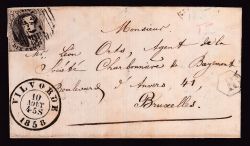 Monsieur
Mr. Léon Orts, Agent de la
Société Charbonnière de Bayemont
Boulevard d'Anvers 41,
Bruxelles.
VILVORDE
10
4S
1858